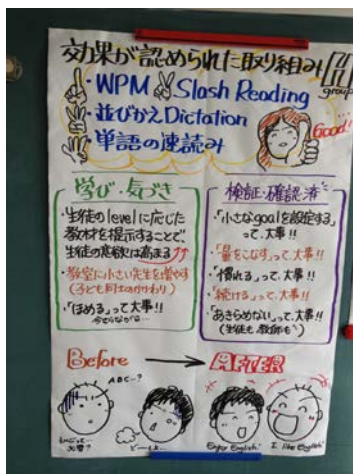 効果が認められた取り組み
group
・WPM Slash Reading
・並びかえDictation
・単語の速読み
Good!
学び・気づき
・生徒のlevelに応じた
教材を提示することで、
生徒の意欲は高まる
・教室に小さい先生を増やす
(子ども同士のかかわり)
・「ほめる」って大事!!
今さらながら…
検証・確認済
・「小さなgoalを設定する」
って、大事!!
・「量をこなす」って、大事!!
・「慣れる」って、大事!!
・「続ける」って、大事!!
・「あきらめない」って、大事!!
(生徒も教師も)
Before → AFTER
ABC…?
Enjoy English!
I like English!